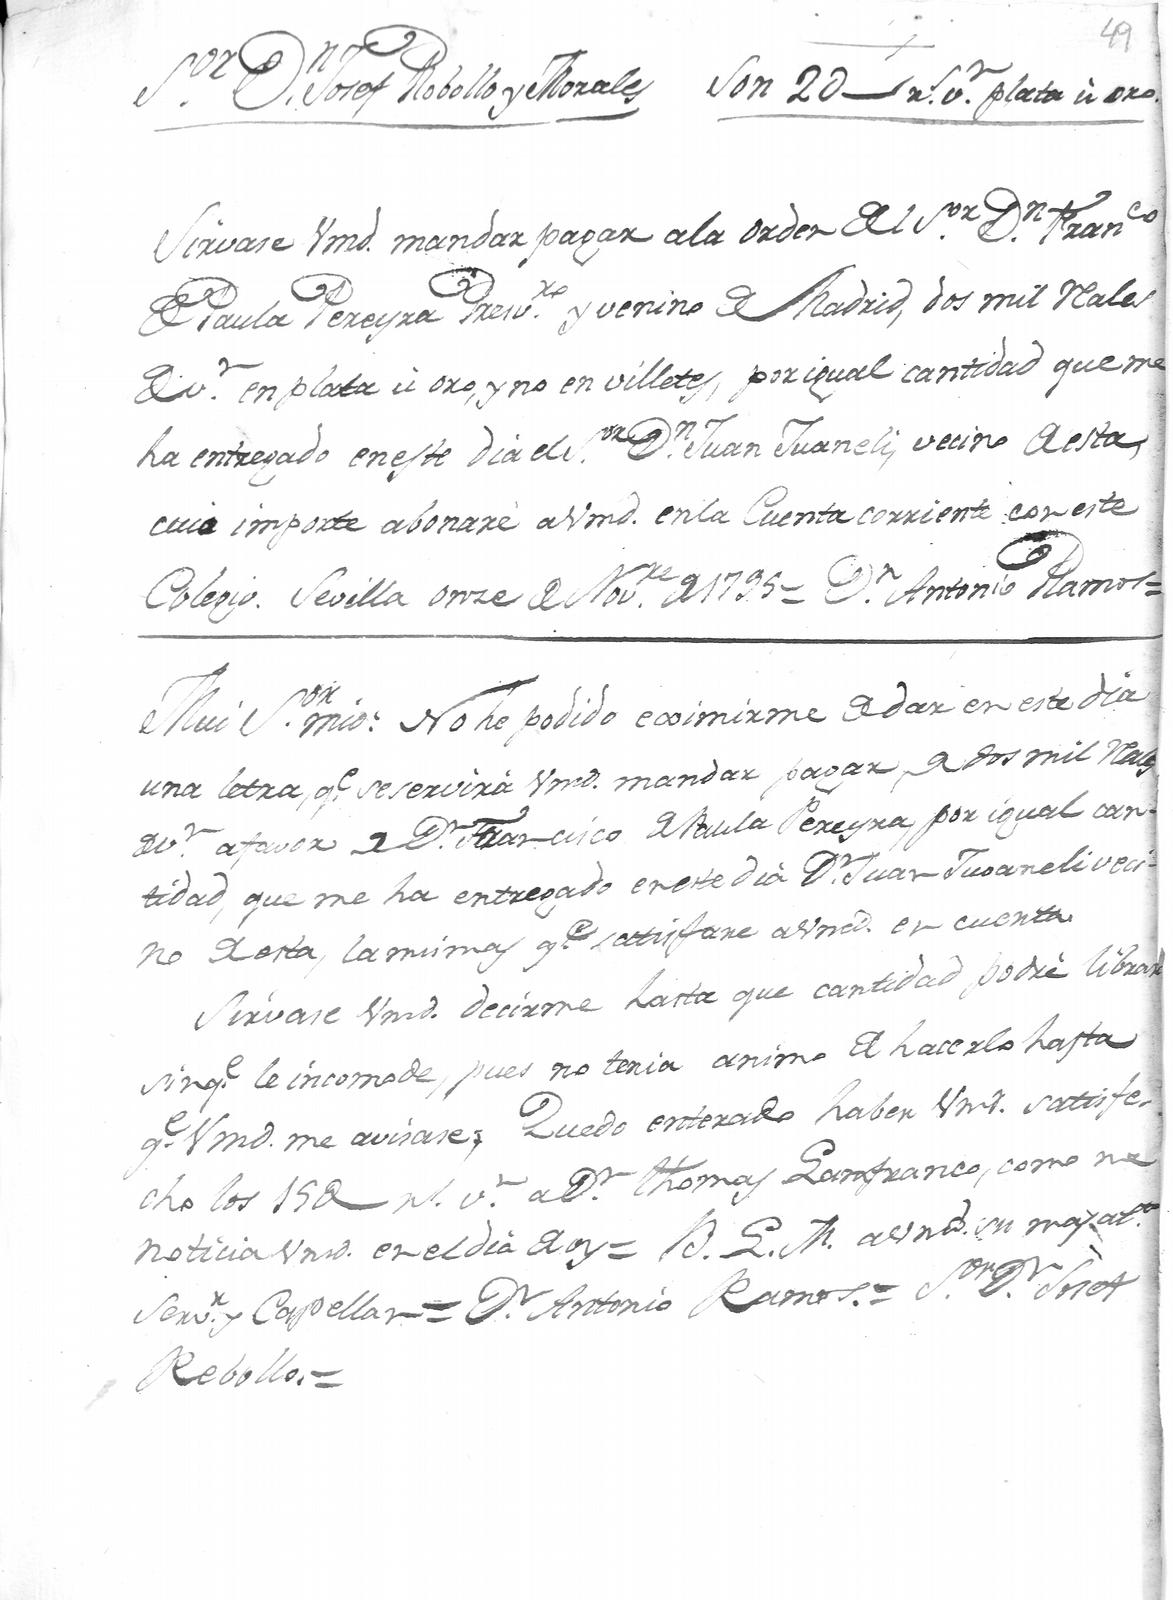 49
S.or D.n Josef Rebollo y Morales Son 2D r.s v.n plata ù oro.
Sirvase Vmd. mandar pagar ala orden del S.or D.n Fran.co
de Paula Pereyra Presv.ro y venino de Madrid, dos mil Rales
de v.n en plata ù oro, y no en villetes, por igual cantidad que me
ha entregado en este dia el S.or D.n Juan Juaneli, vecino de esta,
cuio importe abonarè a Vmd. en la Cuenta corriente con este
Colegio. Sevilla onze de Nov.re de 1795= D.n Antonio Ramos=
Mui S.or mio: No he podido eximirme de dar en este dia
una letra, q.e se servirà Vmd. mandar pagar, de dos mil Rales
de v.n afavor de D.n Francisco de Paula Pereyra, por igual can-
tidad, que me ha entregado en este dia D.n Juan Juaneli veci-
no de esta, la mismas q.e satisfare a Vmd. en cuenta.
Sirvase Vmd. decirme hasta que cantidad podrè librar
sin q.e le incomode, pues no tenia animo de hacerlo hasta
q.e Vmd. me avisase; Quedo enterado haber Vmd. satisfe-
cho los 15D r.s v.n a D.n Thomas Lanfranco, como me
noticia Vmd. en el dia de oy= B. L. M. a Vmd. su mas at.to
serv.r y Capellan= D.n Antonio Ramos.= S.or D.n Josef
Rebollo.=